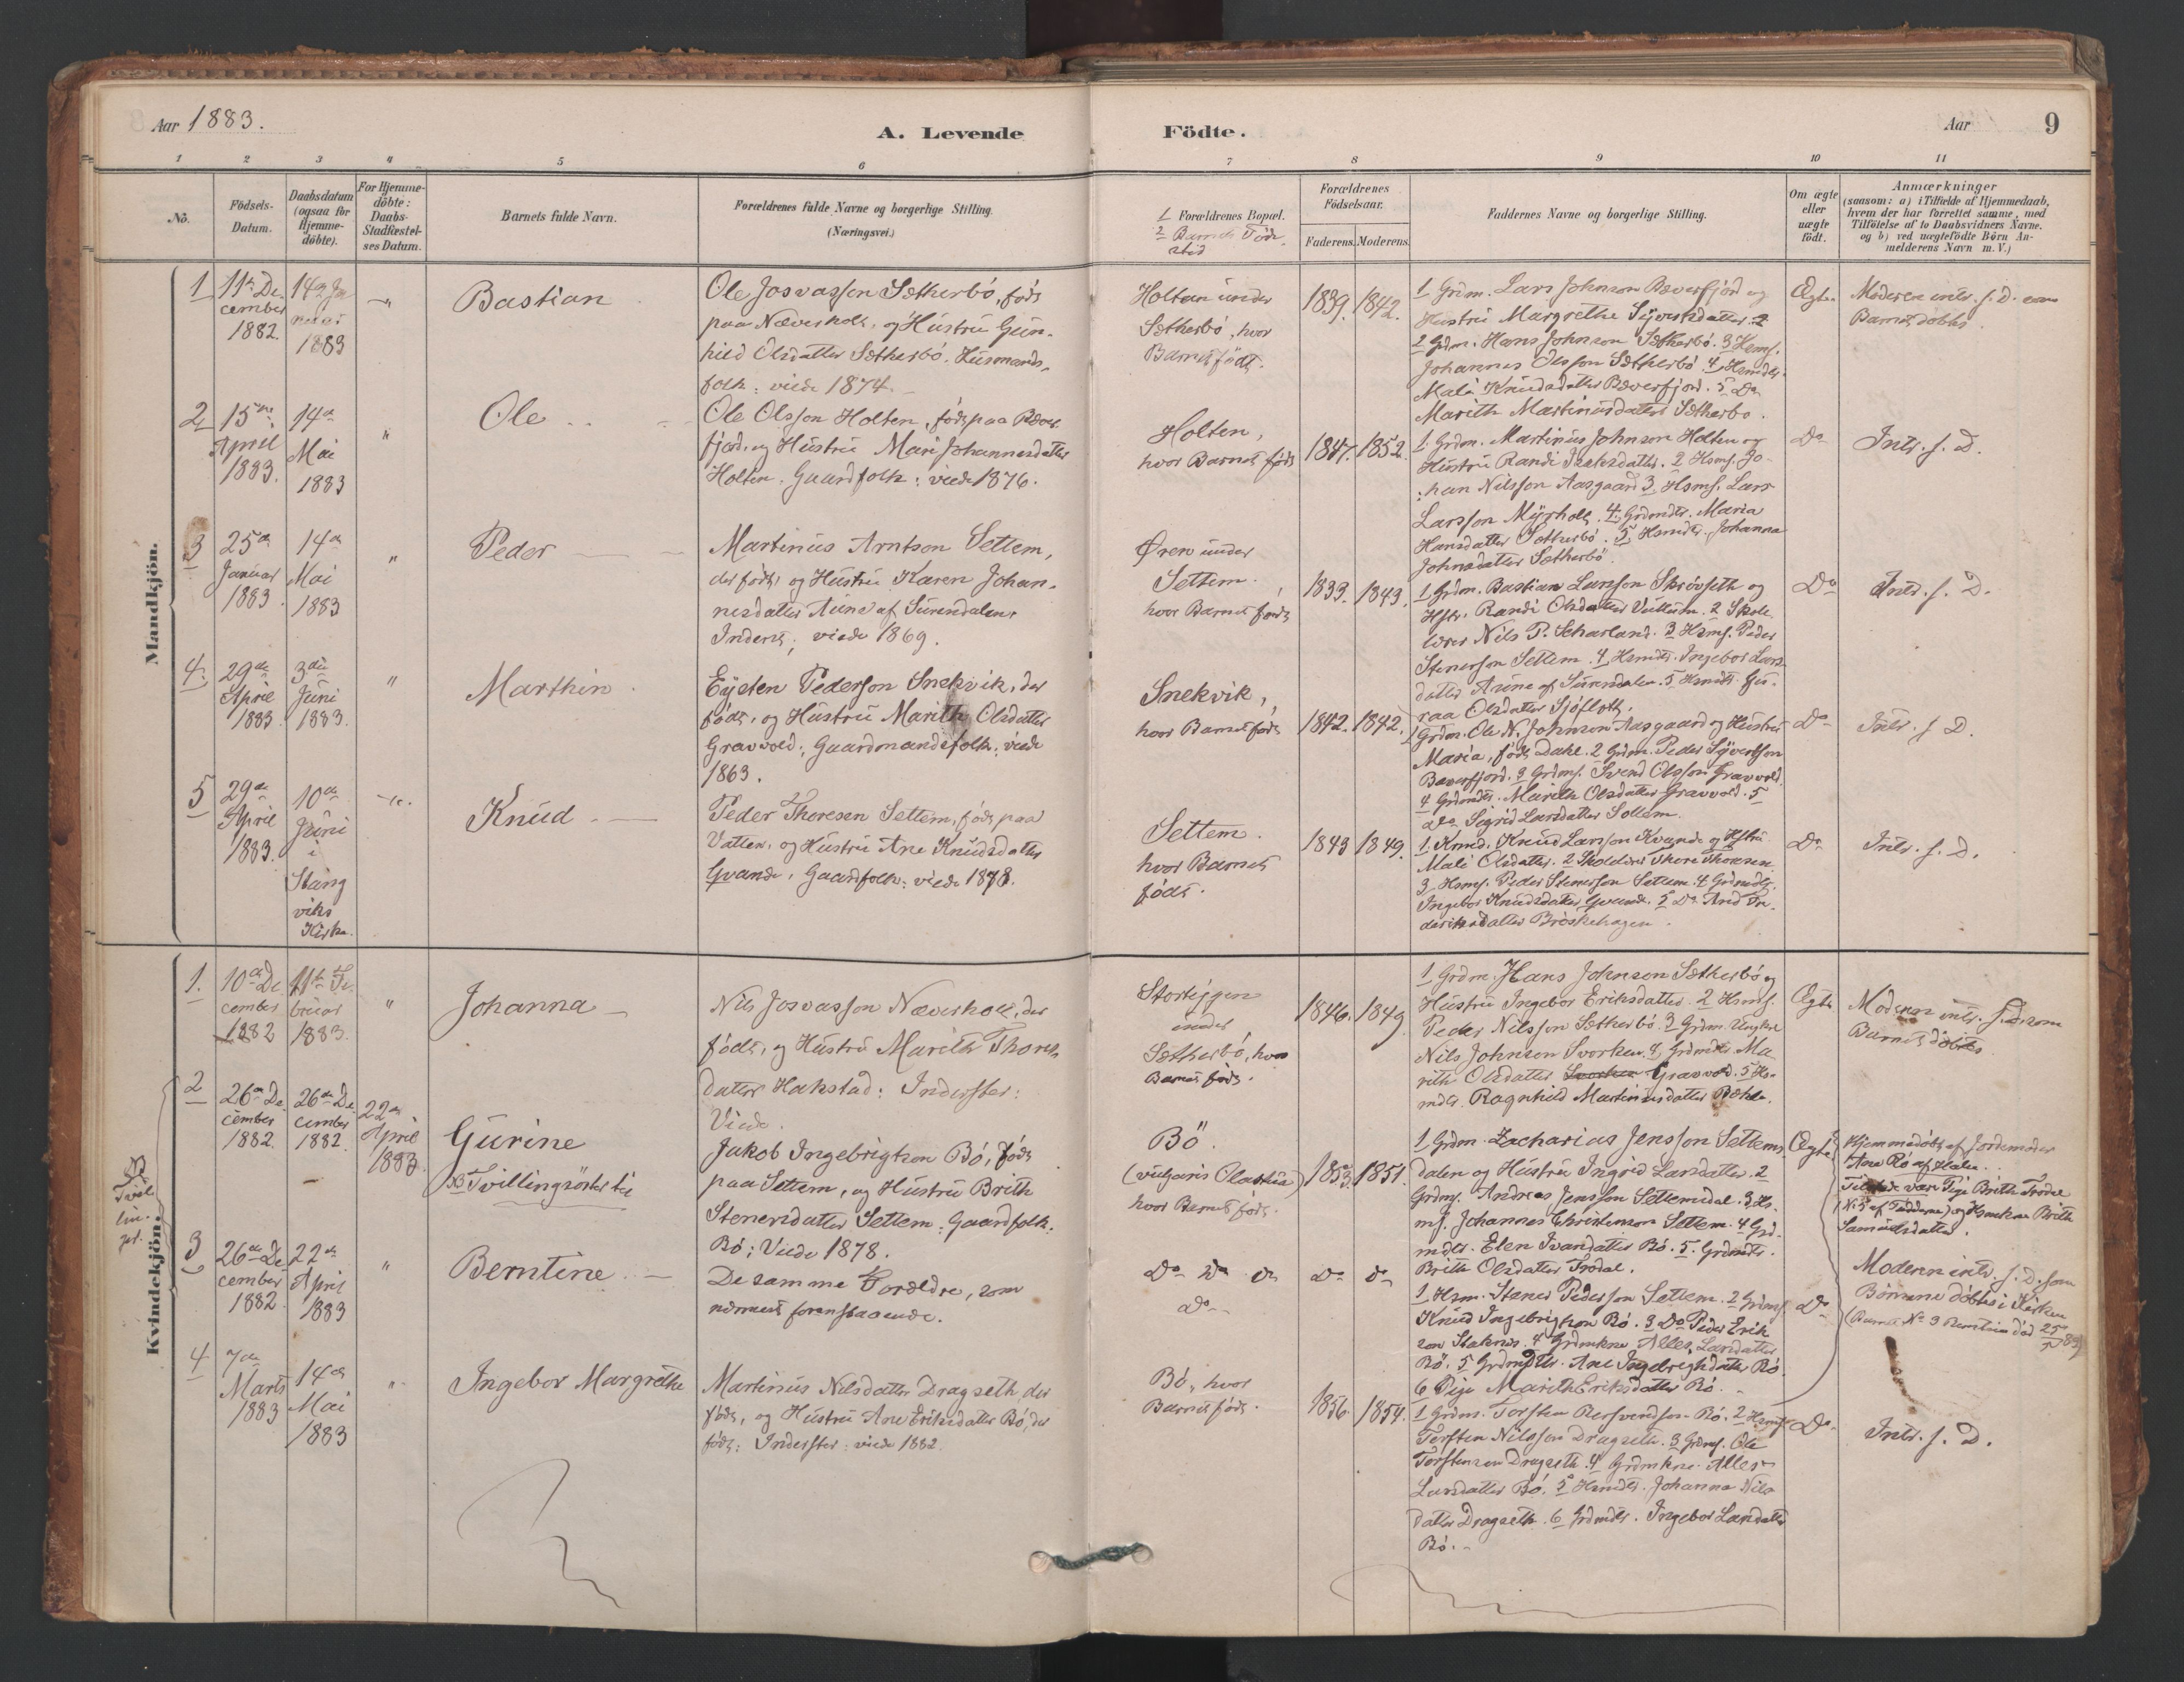 Aar 1883.
A. Levende
Födte.
Aar
9
1
2
3
4
5
6
7
8
9
10
11
Nô.
Födsels-
Datum.
Daabsdatum
(ogsaa for
Hjemme-
döbte).
For Hjemme-
döbte:
Daabs-
Stadfæstel-
ses Datum.
Barnets fulde Navn.
Forældrenes fulde Navne og borgerlige Stilling.
(Næringsvei.)
1 Forældrenes Bopæl.
2 Barnets Föde
sted
Forældrenes
Födselsaar.
Faderens.
Moderens.
Faddernes Navne og borgerlige Stilling.
Om ægte
eller
uægte
födt.
Anmærkninger
(saasom: a) i Tilfælde af Hjemmedaab,
hvem der har forrettet samme, med
Tilföielse af to Daabsvidners Navne.
og b) ved uægtefödte Börn An-
melderens Navn m. V.)
Mandkjön.
1
11te De
cember
1882.
14de Ja
nuar
1883
"
Bastian
Ole Josvasson Sætherbö, födt
paa Næverholt, og Hustru Gun-
hild Olsdatter Sætherbö. Husmands-
folk: viede 1874.
Holtan under
Sætherbö, hvor
Barnet födt.
1839.
1842.
1 Grdm. Lars Johnson Bæverfjord og
Hustru Margrethe Syvertsdatter. 2
2 Grdm. Hans Johnson Sætherbö. 3 Hsmf.
Johannes Olsson Sætherbö 4 Hsmdtr.
Mali Knudsdatter Bæverfjord. 5 Do
Marith Martinusdatter Sætherbö.
Ægte
Moderen intr. s. D. som
Barnet döbtes.
2
15de
April
1883.
14de
Mai
1883
"
Ole
Ole Olsson Holten, födt paa Bæver
fjord, og Hustru Mari Johannesdatter
Holten. Gaardfolk: viede 1876.
Holten,
hvor Barnet födt
1847.
1852.
1. Grdm. Martinus Johnson Holten og
Hustru Randi Isaksdatter. 2 Hsmf. Jo-
han Nilsson Aasgaard 3 Hsmf. Lars
Larsson Myrholt. 4 Grdmdtr. Maria
Hansdatter Sætherbö. 5 Hsmdtr. Johanna
Johnsdatter Sætherbö.
Do
Intr. s. D.
3
25de
Januar
1883.
14de
Mai
1883
"
Peder
Martinus Arntson Settem,
der födt, og Hustru Karen Johan-
nesdatter Aune af Surendalen,
Inderst; viede 1869.
Øren under
Settem.
hvor Barnet födt
1833.
1843.
1 Grdm. Bastian Larsson Skrövseth og
Hstr. Randi Olsdatter 2 Skole
lærer Nils P. 3 Hsmf. Peder
Stenerson Settem. 4 Hsmdtr. Ingebor Lars
datter Aune af Surendalen. 5 Hsmdtr. Gu-
raa Olsdatter Sjöfloth.
Do
Intr. s. D.
4.
29de
April
1883.
3die
Juni
1883.
"
Marthin
Eysten Pederson Snekvik, der
födt, og Hustru Marith Olsdatter
Gravvold; Gaardmandsfolk: viede
1863.
Snekvik,
hvor Barnet födt
1842.
1842.
1 Grdm. Ole N. Johnson Aasgaard og Hustru
Maria, födt Dahl. 2 Grdm. Peder Syvertson
Bæverfjord. 3 Grdmf. Svend Olsson Gravvold.
4 Grdmdtr. Marith Olsdatter Gravvold. 5
do Sigrid Larsdatter Settem.
Do
Intr. s. D.
5
29de
April
1883.
10de
Juni
i
Stang
viks
Kirke.
Knud
Peder Thoresen Settem, födt paa
Vatten, og Hustru Ane Knudsdatter
Qvande, Gaardfolk: viede 1878.
Settem.
hvor Barnet
födt.
1843
1849.
1. Knud Larsson Kvande og Hstru
Mali Olsdatter. 2 Skolelærer Thore Thoresen
3 Hsmf. Peder Stenerson Settem. 4 Grdmdtr.
Ingebor Knudsdatter Qvande. 5 Do Fre-
deriksdatter Bröskehagen.
Do
Intr. s. D.
Kvindekjön.
1.
10de De
cember
1882
11te Fe-
bruar
1883.
"
Johanna
Nils Josvasson Næverholt, der
födt, og Hustru Marith Thores
datter Hakstad: Inderster:
Viede.
Storliggen
under
Sætherbö, hvor
Barnet födt.
1846.
1849.
1 Grdm. Hans Johnson Sætherbö og
Hustru Ingebor Eriksdatter. 2 Hsmf.
Peder Nilsson Sætherbö. 3 Grdm. Ungkrl
Nils Johnson Svorken. 4 Grdmdtr. Ma
rith Olsdatter Svorken Gravvold. 5 Hs-
mdtr. Ragnhild Martinusdatter Bæhle.
Ægte
Moderen intr. s. D. som
Barnet döbtes
Tvil
lin-
ger.
2
26de De
cember
1882.
26de De
cember
1882.
22de
April
1883.
Gurine
Tvillingsöster til
Jakob Ingebrigtson Bö, födt
paa Settem, og Hustru Brith
Stenersdatter Settem. Gaardfolk.
Bö: Viede 1878.
Bö.
(vulgaris Olastua)
hvor Barnet födt.
1853.
1851.
1 Grdm. Zacharias Jensson Settems
dalen og Hustru Ingrid Larsdatter. 2
Grdmf. Andreas Jensson Settemsdal. 3 Hs-
mf. Johannes Christenson Settem. 4 Grd-
mdtr. Elen Ivarsdatter Bö. 5. Grdmdtr.
Brith Olsdatter Trödal.
Ægte
Hjemmedöbt af Jordemoder
Ane Bö af Halse.
Tilstede vare Pige Brith Trödal
(No 5 af Fadderne) og Hsmkne Brith
Samuelsdatter.
3
26de De
cember
1882.
22de
April
1883
"
Berntine
De samme Forældre, som
nærmest foranstaaende.
Do Do Do
Do
Do
Do
1. Hsm. Stener Pederson Settem. 2 Grdmf.
Knud Ingebrigtson Bö. 3 Do Peder Erik
son Staknes. 4 Grdmkne Alles Larsdatter
Bö. 5 Grdmdtr. Ane Ingebrigtsdatter Bö.
6 Pige Marith Eriksdatter Bö.
Do
Moderen intr. s. D. som
Börnene döbtes i Kirken
(Barnet No 3 Berntine död 25/7 83)
4
7de
Marts
1883
14de
Mai
1883
"
Ingebor Margrethe
Martinus Nilsdatter Dragseth der
födt, og Hustru Ane Eriksdatter Bö, der
födt: Inderster: viede 1882.
Bö, hvor
Barnet födt.
1856.
1854.
1 Grdm. Torsten Bersvendson Bö. 2 Hsmf.
Torsten Nilsson Dragseth. 3 Grdmf. Ole
Torstenson Dragseth. 4 Grdmkne. Alles
Larsdatter Bö. 5 Hsmdtr. Johanna Nils
datter Dragseth. 6 Grdmdtr. Ingebor Larsdatter
Bö.
Do
Intr. s. D.